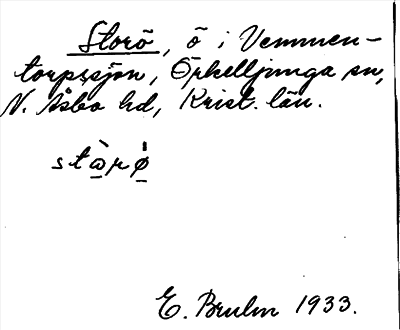 Storö, ö i Vemmen-
torpssjön, Örkelljunga sn,
N. Åsbo hd, Krist. län.
E. Bruhn 1933.